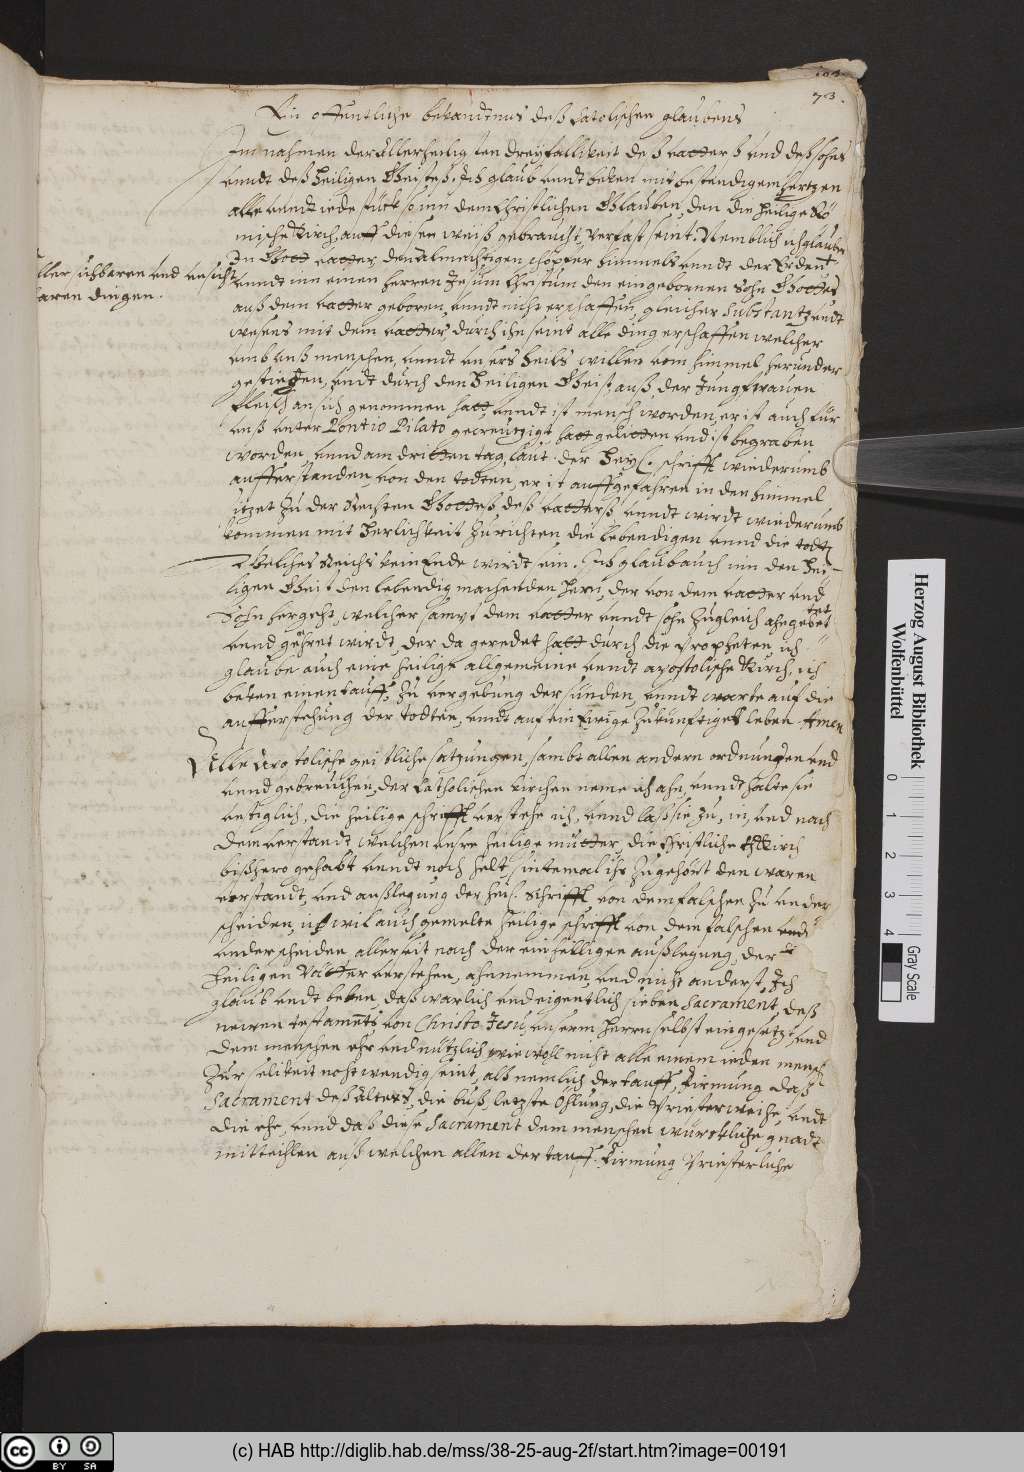 73.
Ein offentliche bekandtnus deß Catolischen glaubens
Im nahmen der Allerheiligsten dreyfaltikeit deß vatters und deß sohns
vnndt deß heiligen Geistes. Ich glaub vndt beken mit bestendigem hertzen
alle vnndt iede stück so inn dem Christlichen Glauben, den die heilige Rö
mische Kirch auff diesen weiß gebraucht, verfast seint. Nemblich ich glaube
In Gott vatter den Almechtigen schöpffer himmels vnndt der Erden
aller sichbaren vnd vnsicht
baren dingen.
vnndt inn einen herren Jesum Christum den eingebornen Sohn Gottes
auß dem vatter geboren, vnndt nicht erschaffen, gleicher Substantz vndt
wesens mit dem vatter, durch ihn seint alle ding erschaffen welcher
vmb vnß menschen, vnndt vnsers heils willen vom himmel herunder
gestiegen, vndt durch den heiligen Geist, auß der Jungfrauen
fleisch an sich genommen hatt, vnndt ist mensch worden, er ist auch für
vnß vnter Pontio Pilato gecreutzigt hatt gelitten vnd ist begraben
worden, vnnd am dritten tag, laut der heyl. schrifft wiederumb
aufferstanden, von den todten, er ist auffgefahren in den himmel
sitzet zu der Rechten Gottes deß vatterß vnndt wirdt wiederumb
kommen mit herlichkeit zu richten die lebendigen vnnd die todten
Welches Reichs kein Ende wirdt sein. Ich glaub auch inn den hei-
ligen Geist den lebendig machenden hern, der von dem vatter vnd
Sohn hergeht, welcher sampt dem vatter vnndt sohn zugleich ahngebettet
vnnd gehret wirdt, der da geredet hatt durch die propheten, ich
glaube auch eine heilige allgemeine vnndt apostolische Kirch, ich
beken einen tauff, zu vergebung der sünden, vnndt warte auf die
aufferstehung der todten, vnndt auf ein Ewige zukunftiges leben Amen
Alle Apostolische geistliche satzungen, sambt allen andern ordnungen vnd
vnnd gebreuchen, der Catholischen kirchen neme ich ahn, vnndt halte sie
vestiglich, die heilige schrifft verstehe ich, vnnd laß sie zu, in, vnd nach
dem verstandt welchen vnsre heilige mutter, die Christliche Kirch
bißhero gehabt vnndt noch helt, sintemal ihr zugehört den waren
verstandt, vnd außlegung der heil. schrifft von dem falschen zu vnder
scheiden, ich wil auch gemelte heilige schrifft von dem falschen
vnderscheiden allerzeit nach der einhelligen außlegung, der
heiligen Vätter verstehen, ahnnemmen, vnd nicht anderst, Ich
glaub vndt beken, daß warlich vnd eigentlich sieben Sacrament, deß
neuen testaments von Christo Jesu, vnserm herrn selbst eingesetzt send
dem menschen sehr vnd nützlich, wiewoll nicht alle einem ieden mensch
zur selikeit nothwendig seint, alß nemlich der tauff, firmung daß
Sacrament deß Alters, die büß, letzste öhlung, die Priesterweihe, vndt
die ehe, vnnd daß diese Sacrament dem menschen würckliche gnadt
mitteihlen auß welchen allen der tauff. firmung Priesterliche
Herzog August Bibliothek
Wolfenbüttel
0 1 2 3 4
Gray Scale
cc BY SA
(c) HAB http://diglib.hab.de/mss/38-25-aug-2f/start.htm?image=00191